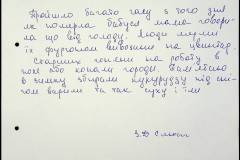 Пройшло багато часу з того дня
як померла бабуся мама говори-
ла що від голоду. Люди мерли
їх фургоном вивозили на цвинтар
Старших гонили на роботу в
копали городи.
в зимку збирали кукурудзу під сні-
гом варили та так суху і їли